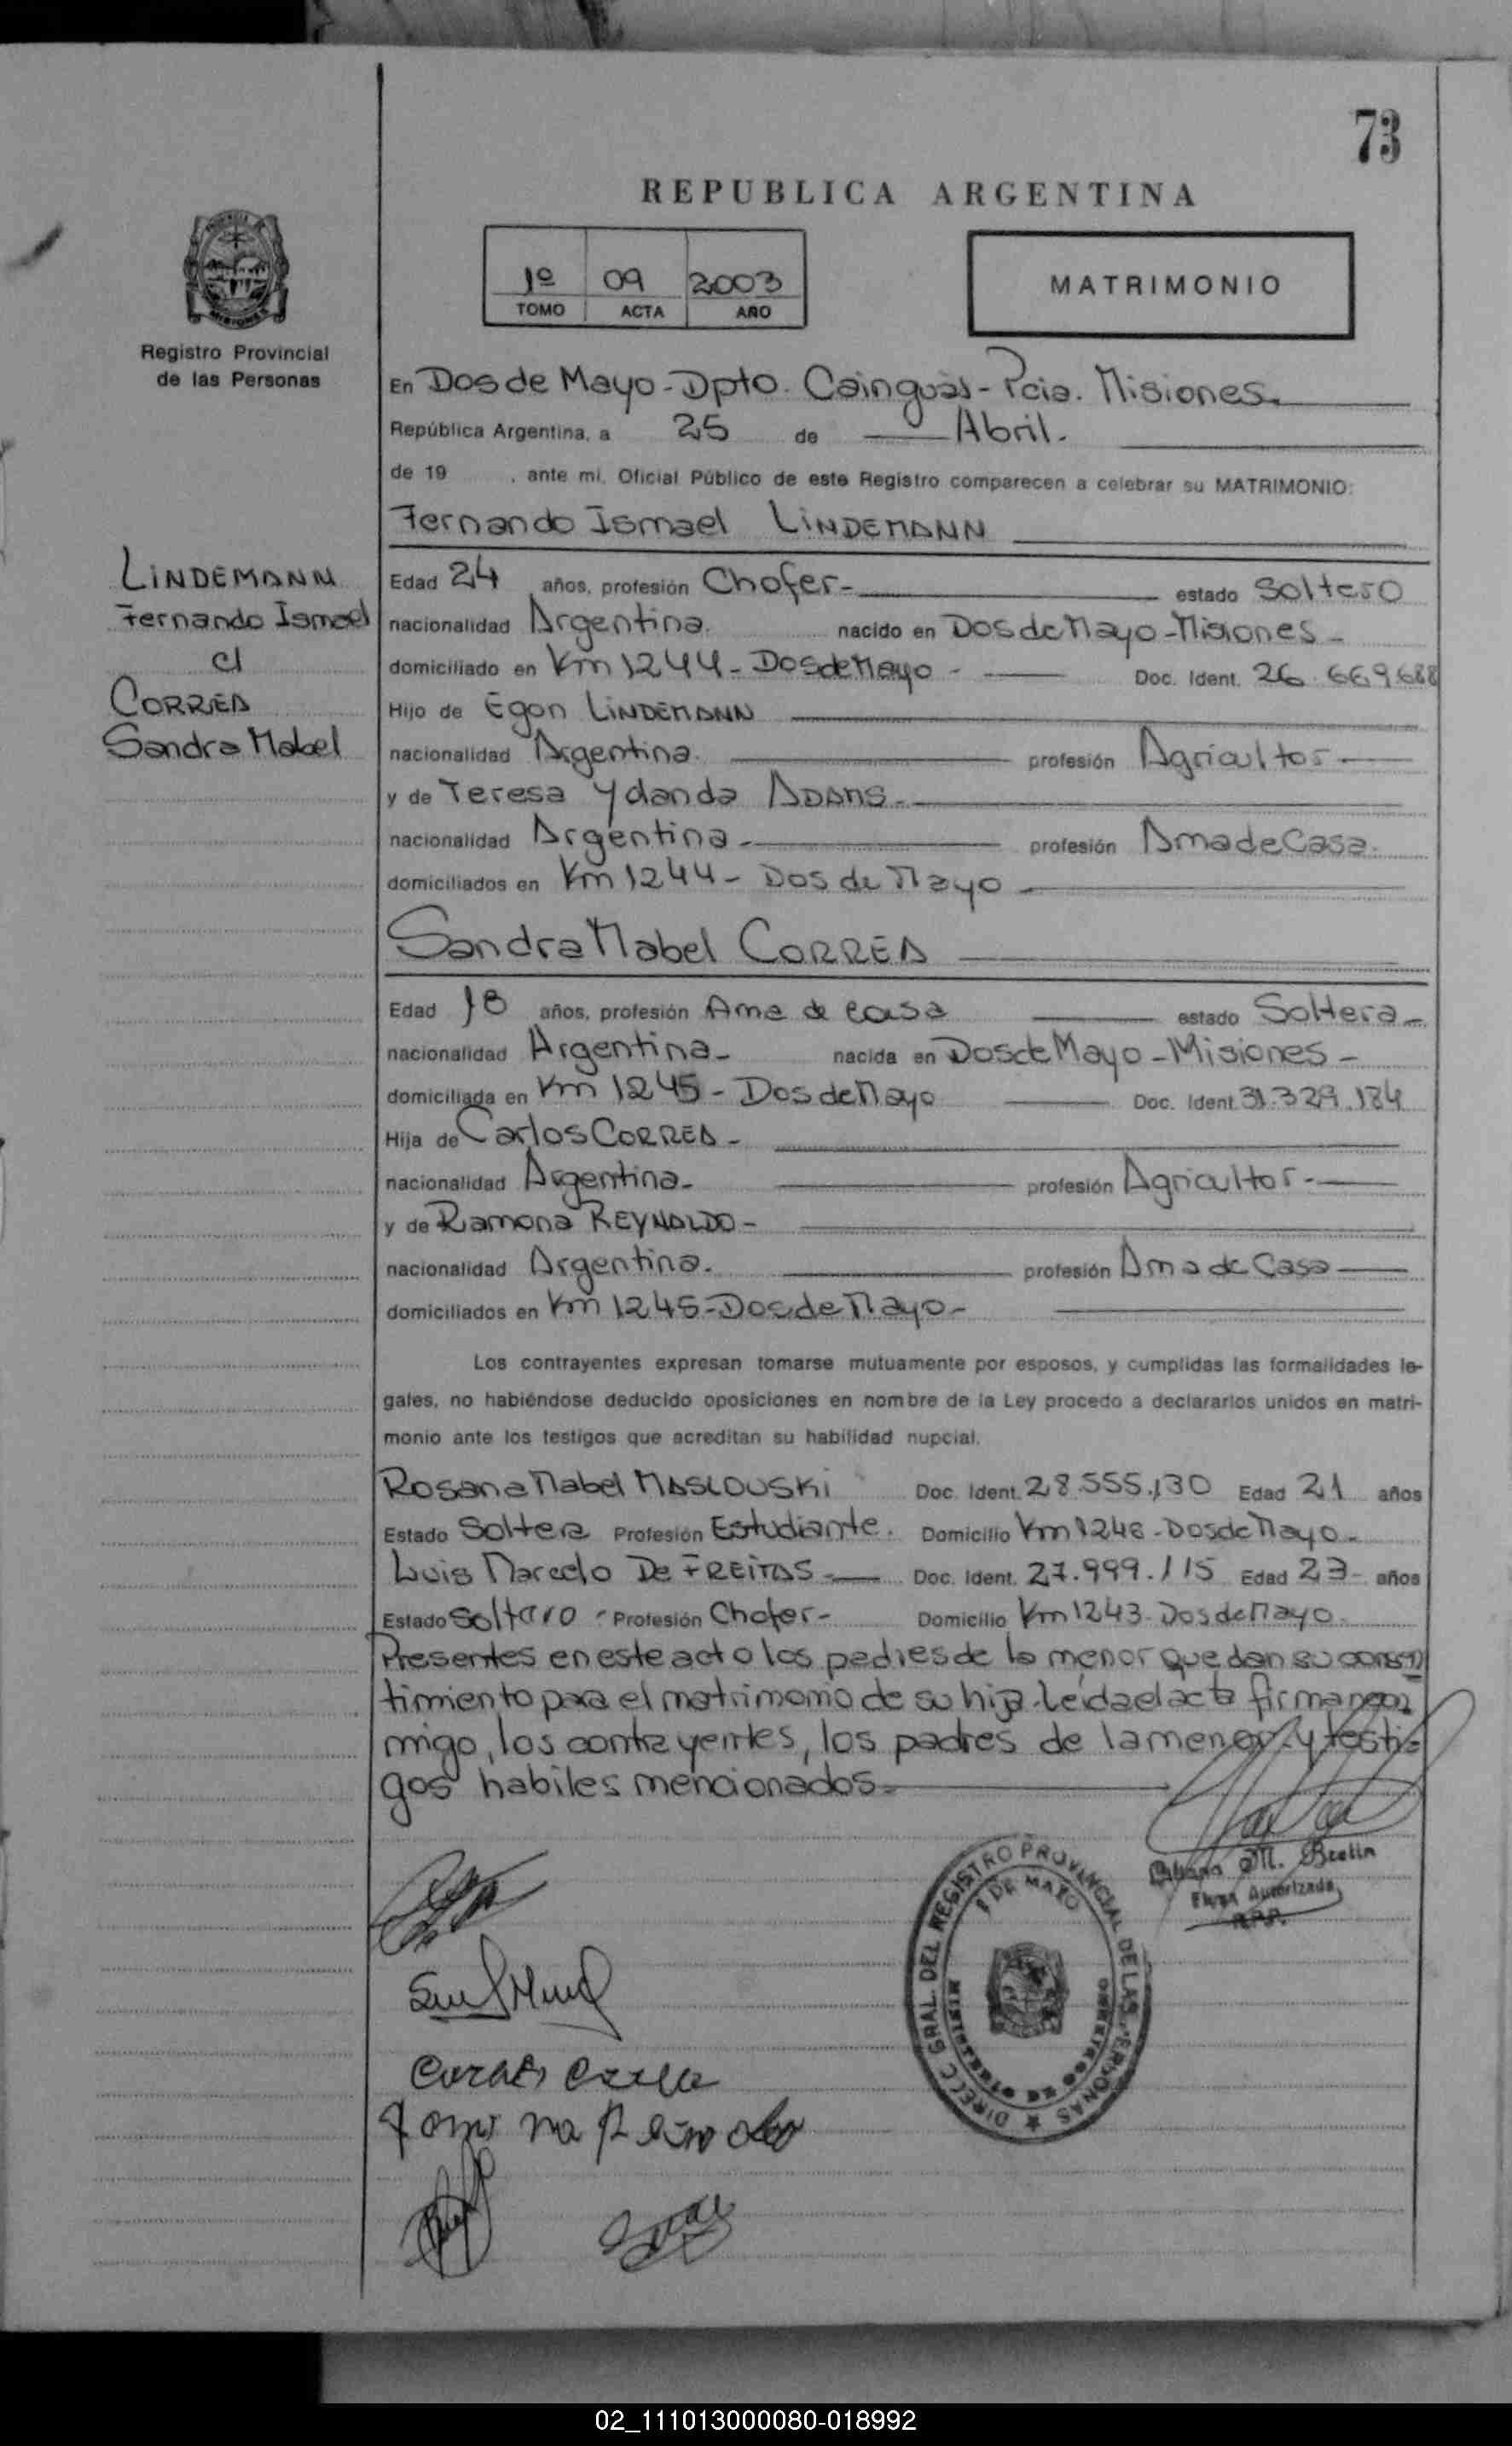 73
REPUBLICA ARGENTINA
1º 09 2003
TOMO ACTA AÑO
MATRIMONIO
Registro Provincial
de las Personas
En Dos de Mayo - Dpto. Cainguás - Pcia. Misiones.
República Argentina, a 25 de Abril.
de 19 , ante mi, Oficial Público de este Registro comparecen a celebrar su MATRIMONIO:
Fernando Ismael LINDEMANN
LINDEMANN
Fernando Ismael
c/
CORREA
Sandra Mabel
Edad 24 años, profesión Chofer- estado Soltero
nacionalidad Argentina. nacido en Dos de Mayo-Misiones-
domiciliado en Km 1244 - Dos de Mayo - Doc. Ident. 26.669.688
Hijo de Egon LINDEMANN
nacionalidad Argentina. profesión Agricultor
y de Teresa Yolanda ADAMS.
nacionalidad Argentina - profesión Ama de Casa.
domiciliados en Km 1244 - Dos de Mayo
Sandra Mabel CORREA
Edad 18 años, profesión Ama de casa estado Soltera-
nacionalidad Argentina- nacida en Dos de Mayo - Misiones -
domiciliada en Km 1245 - Dos de Mayo Doc. Ident. 31.329.184
Hija de Carlos CORREA -
nacionalidad Argentina- profesión Agricultor-
y de Ramona REYNALDO -
nacionalidad Argentina. profesión Ama de Casa
domiciliados en Km 1245-Dos de Mayo-
Los contrayentes expresan tomarse mutuamente por esposos, y cumplidas las formalidades le-
gales, no habiéndose deducido oposiciones en nombre de la Ley procedo a declararlos unidos en matri-
monio ante los testigos que acreditan su habilidad nupcial.
Rosana Mabel MASLOUSKI Doc. Ident. 28.555.130 Edad 21 años
Estado Soltera Profesión Estudiante. Domicilio Km 1248 - Dos de Mayo-
Luis Marcelo DE FREITAS - Doc. Ident. 27.999.115 Edad 23- años
Estado Soltero - Profesión Chofer- Domicilio Km 1243 - Dos de Mayo.
Presentes en este acto los padres de la menor que dan su consen
timiento para el matrimonio de su hija. Leída el acta firman con
migo, los contrayentes, los padres de la menor y testi-
gos habiles mencionados.
M. Brelin
Firma Autorizada
R.P.P.
DIREC. GRAL. DEL REGISTRO PROVINCIAL DE LAS PERSONAS
2 DE MAYO
02_111013000080-018992